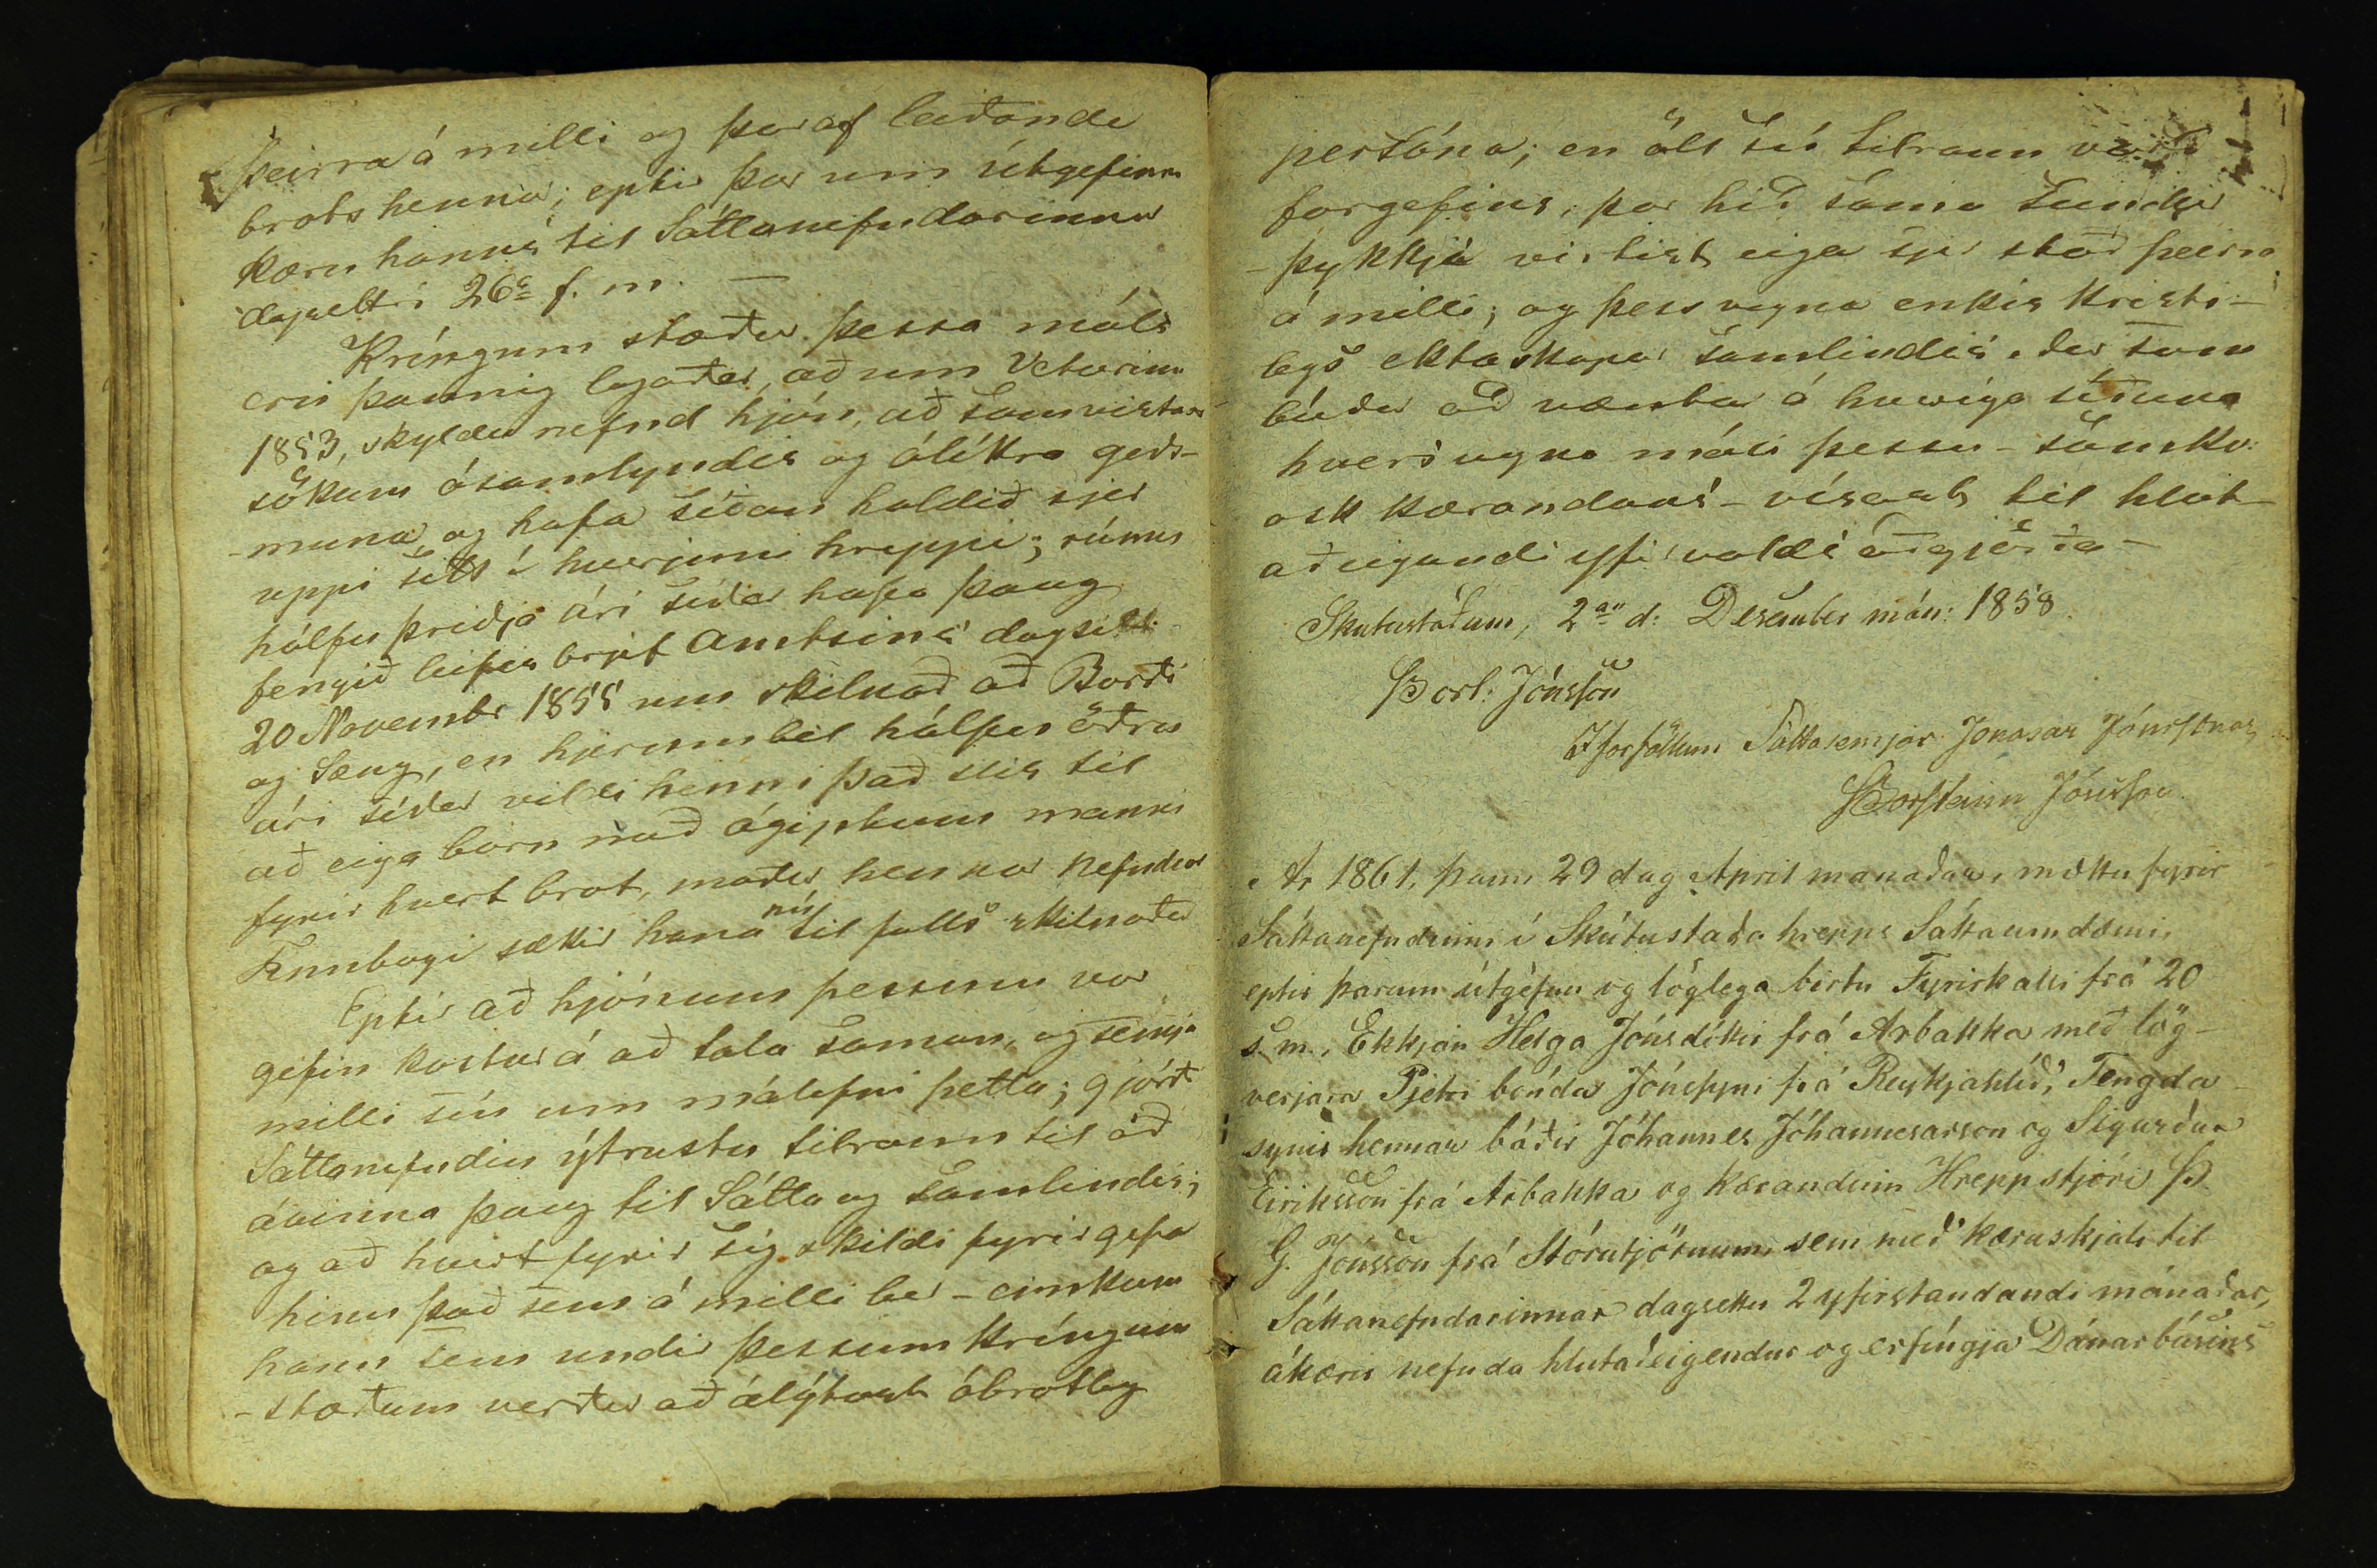 þeirra á milli og þaraf leiðande
brots hennar; eptir þar um útgefinn
kæru hanns til Sáttanefndarinnar
dagsettri 26c f. m. —
Kríngum stæður þessa máls
eru þannig lagaðar, að um Veturinn
1853, skyldu nefnd hjón, að samvistum
sökum ósamlyndis og ólíkra geðs-
-muna og hafa síðan haldið sjer
uppi sitt í hverjum hreppi; rúmu
hálfu þriðja ári síðar hafa þaug
fengið leifis brjef Amtsins dagsett
20 Novembr 1855 um skilnað að Borði
og Sæng, en hjerumbil hálfu öðru
ári síðar vildi henni það slis til
að eiga barn með ógiptum manni
fyrir hvert brot, maður hennar nefndur
Finnbogi sækir hana nú til fulls skilnaðar
Eptir að hjónum þessum var
gefin kostur á að tala saman, og semja
milli sín um málefni þetta; gjörði
Sáttanefndin ýtrustu tilraun til að
ávinna þaug til Sátta og samlindis;
og að hvert fyrir sig skildi fyrirgefa
hinu það sem á milli ber - einkum
hann sem undir þessum kríngum
-stæðum verður að álýtast óbrotleg
persóna; en öll sú tilraun varð
forgefins, þar hið sama sundur
-þykkja virtist eiga sjer stað þeirra
á milli; og þess vegna enkis kristi-
legs ektaskapar samlindis eður sam
búðar að vænta á hvoruga síðuna
hvers vegna máli þessu - samkv:
ósk kærandans - vísast til hlut-
aðeigandi yfirvalds aðgjörða -
Skutustöðum, 2an d: Desember mán: 1858.
Þorl: Jónsson
Í forföllum Sáttasemjar Jonasar Jónssonar
Þorsteinn Jónsson
Ár 1861, þann 29 dag Apríl manaðar, mættu fyrir
Sáttanefndinni í Skútustaða hrepps Sáttaumdæmi,
eptir þarum útgefnu og löglega birtu Fyrirkalli frá 20
s. m., Ekkjan Helga Jónsdóttir frá Arbakka með lög-
verjara Pjetri bónda Jónssyni frá Reykjahlíð, Tengda-
synir hennar báðir Jóhannes Jóhannesarson og Sigurður
Eiriksson frá Arbakka og kærandinn Hreppstjóri Þ.
G. Jónsson frá Stórutjörnum sem með kæruskjali til
Sáttanefndarinnar dagsettu 2 yfirstandandi mánaðar,
ákæris nefnda hlutaðeigendur og erfingja Dánarbúsins